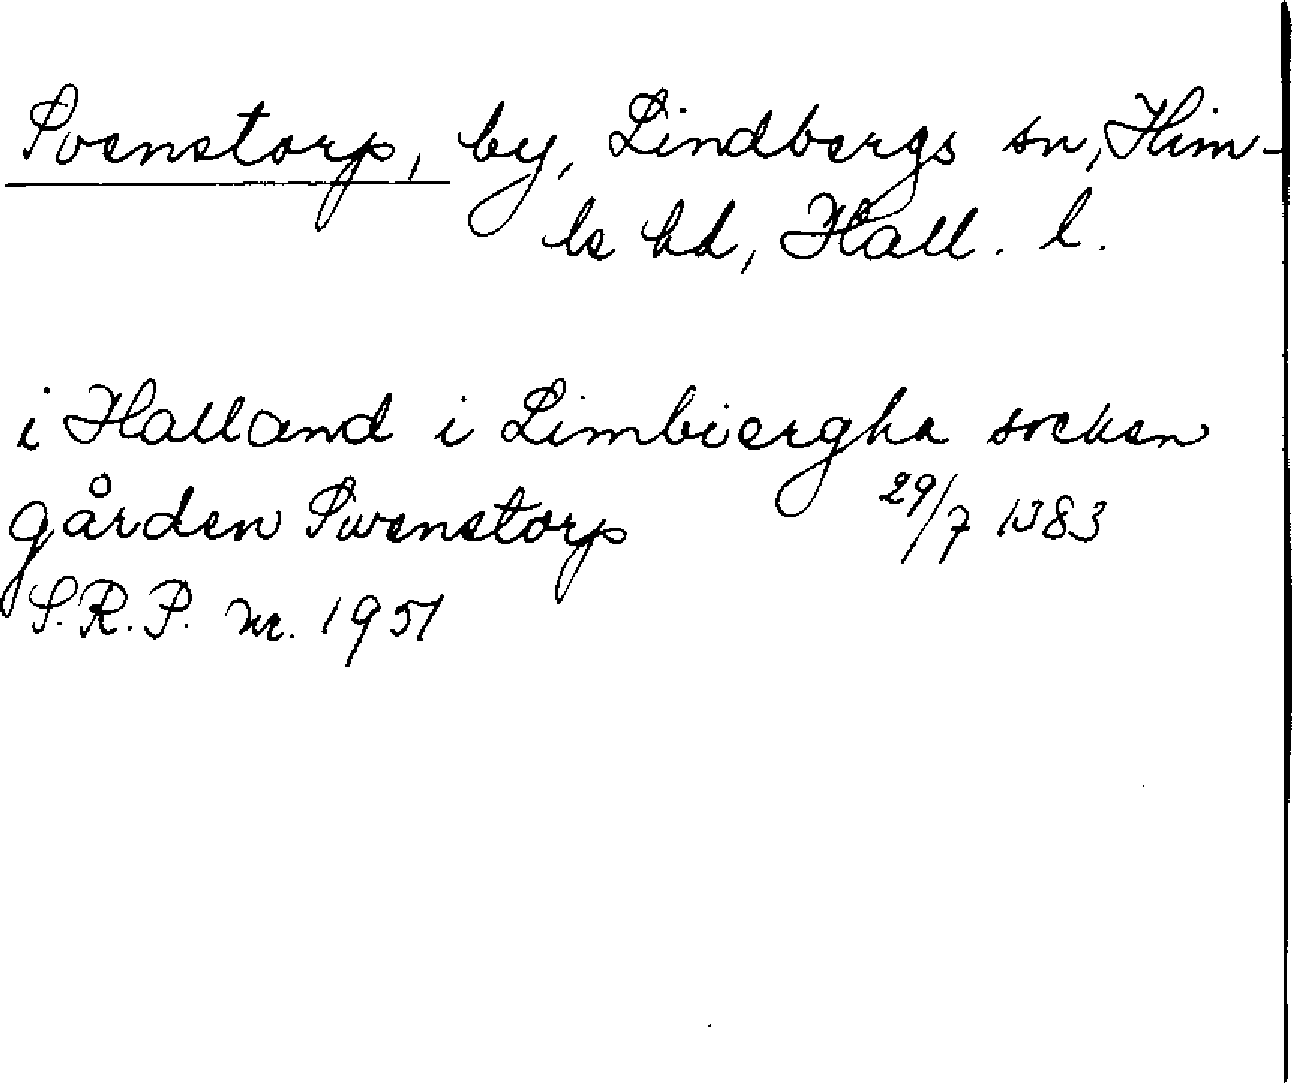 Svenstorp, by, Lindbergs sn, Him-
le hd, Hall. l.
i Halland i Limbiergha socken
gården Swenstorp 29/7 1383
S.R.P. nr. 1951